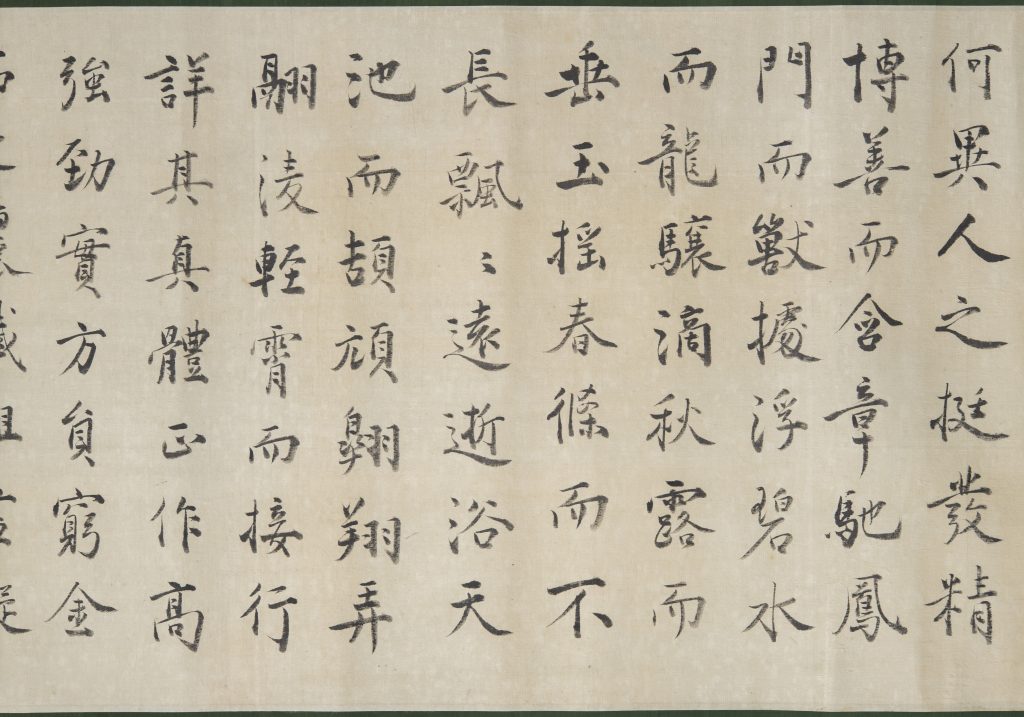 何異人之挺發精
博善而含章馳鳳
門而獸據浮碧水
而龍驤滴秋露而
垂玉搖春條而不
長飄〻遠逝浴天
池而頡頏翱翔弄
翮淩輕霄而接行
詳其真體正作高
強勁實方員窮金